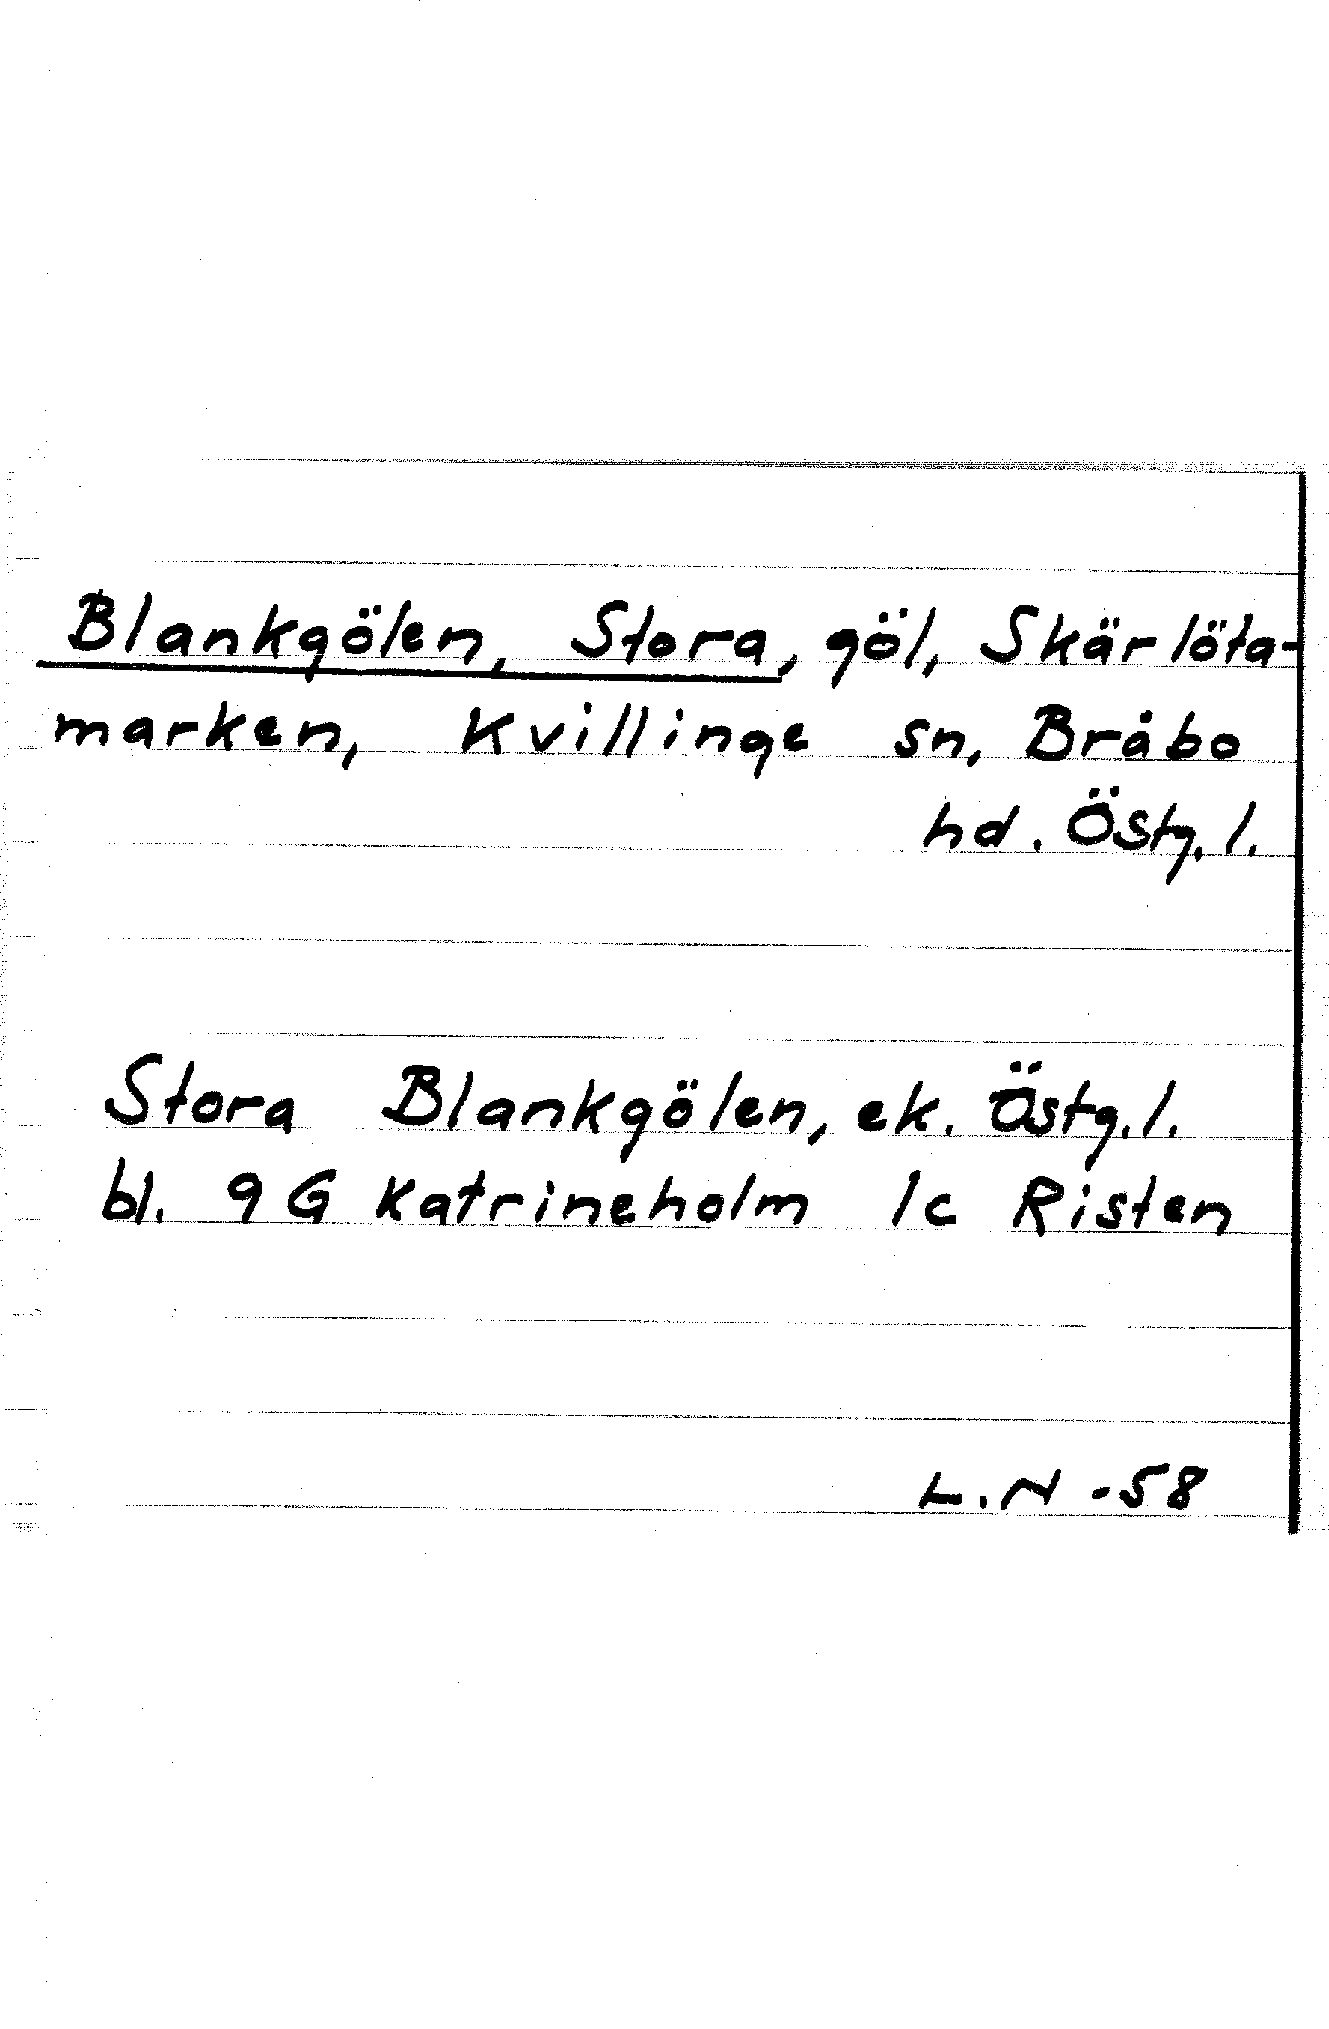 Blankgölen, Stora, göl, Skärlöta-
marken, Kvillinge sn, Bråbo
hd. Östg. l.
Stora Blankgölen, ek. Östg. l.
bl. 9 G Katrineholm 1c Risten
L. N -58